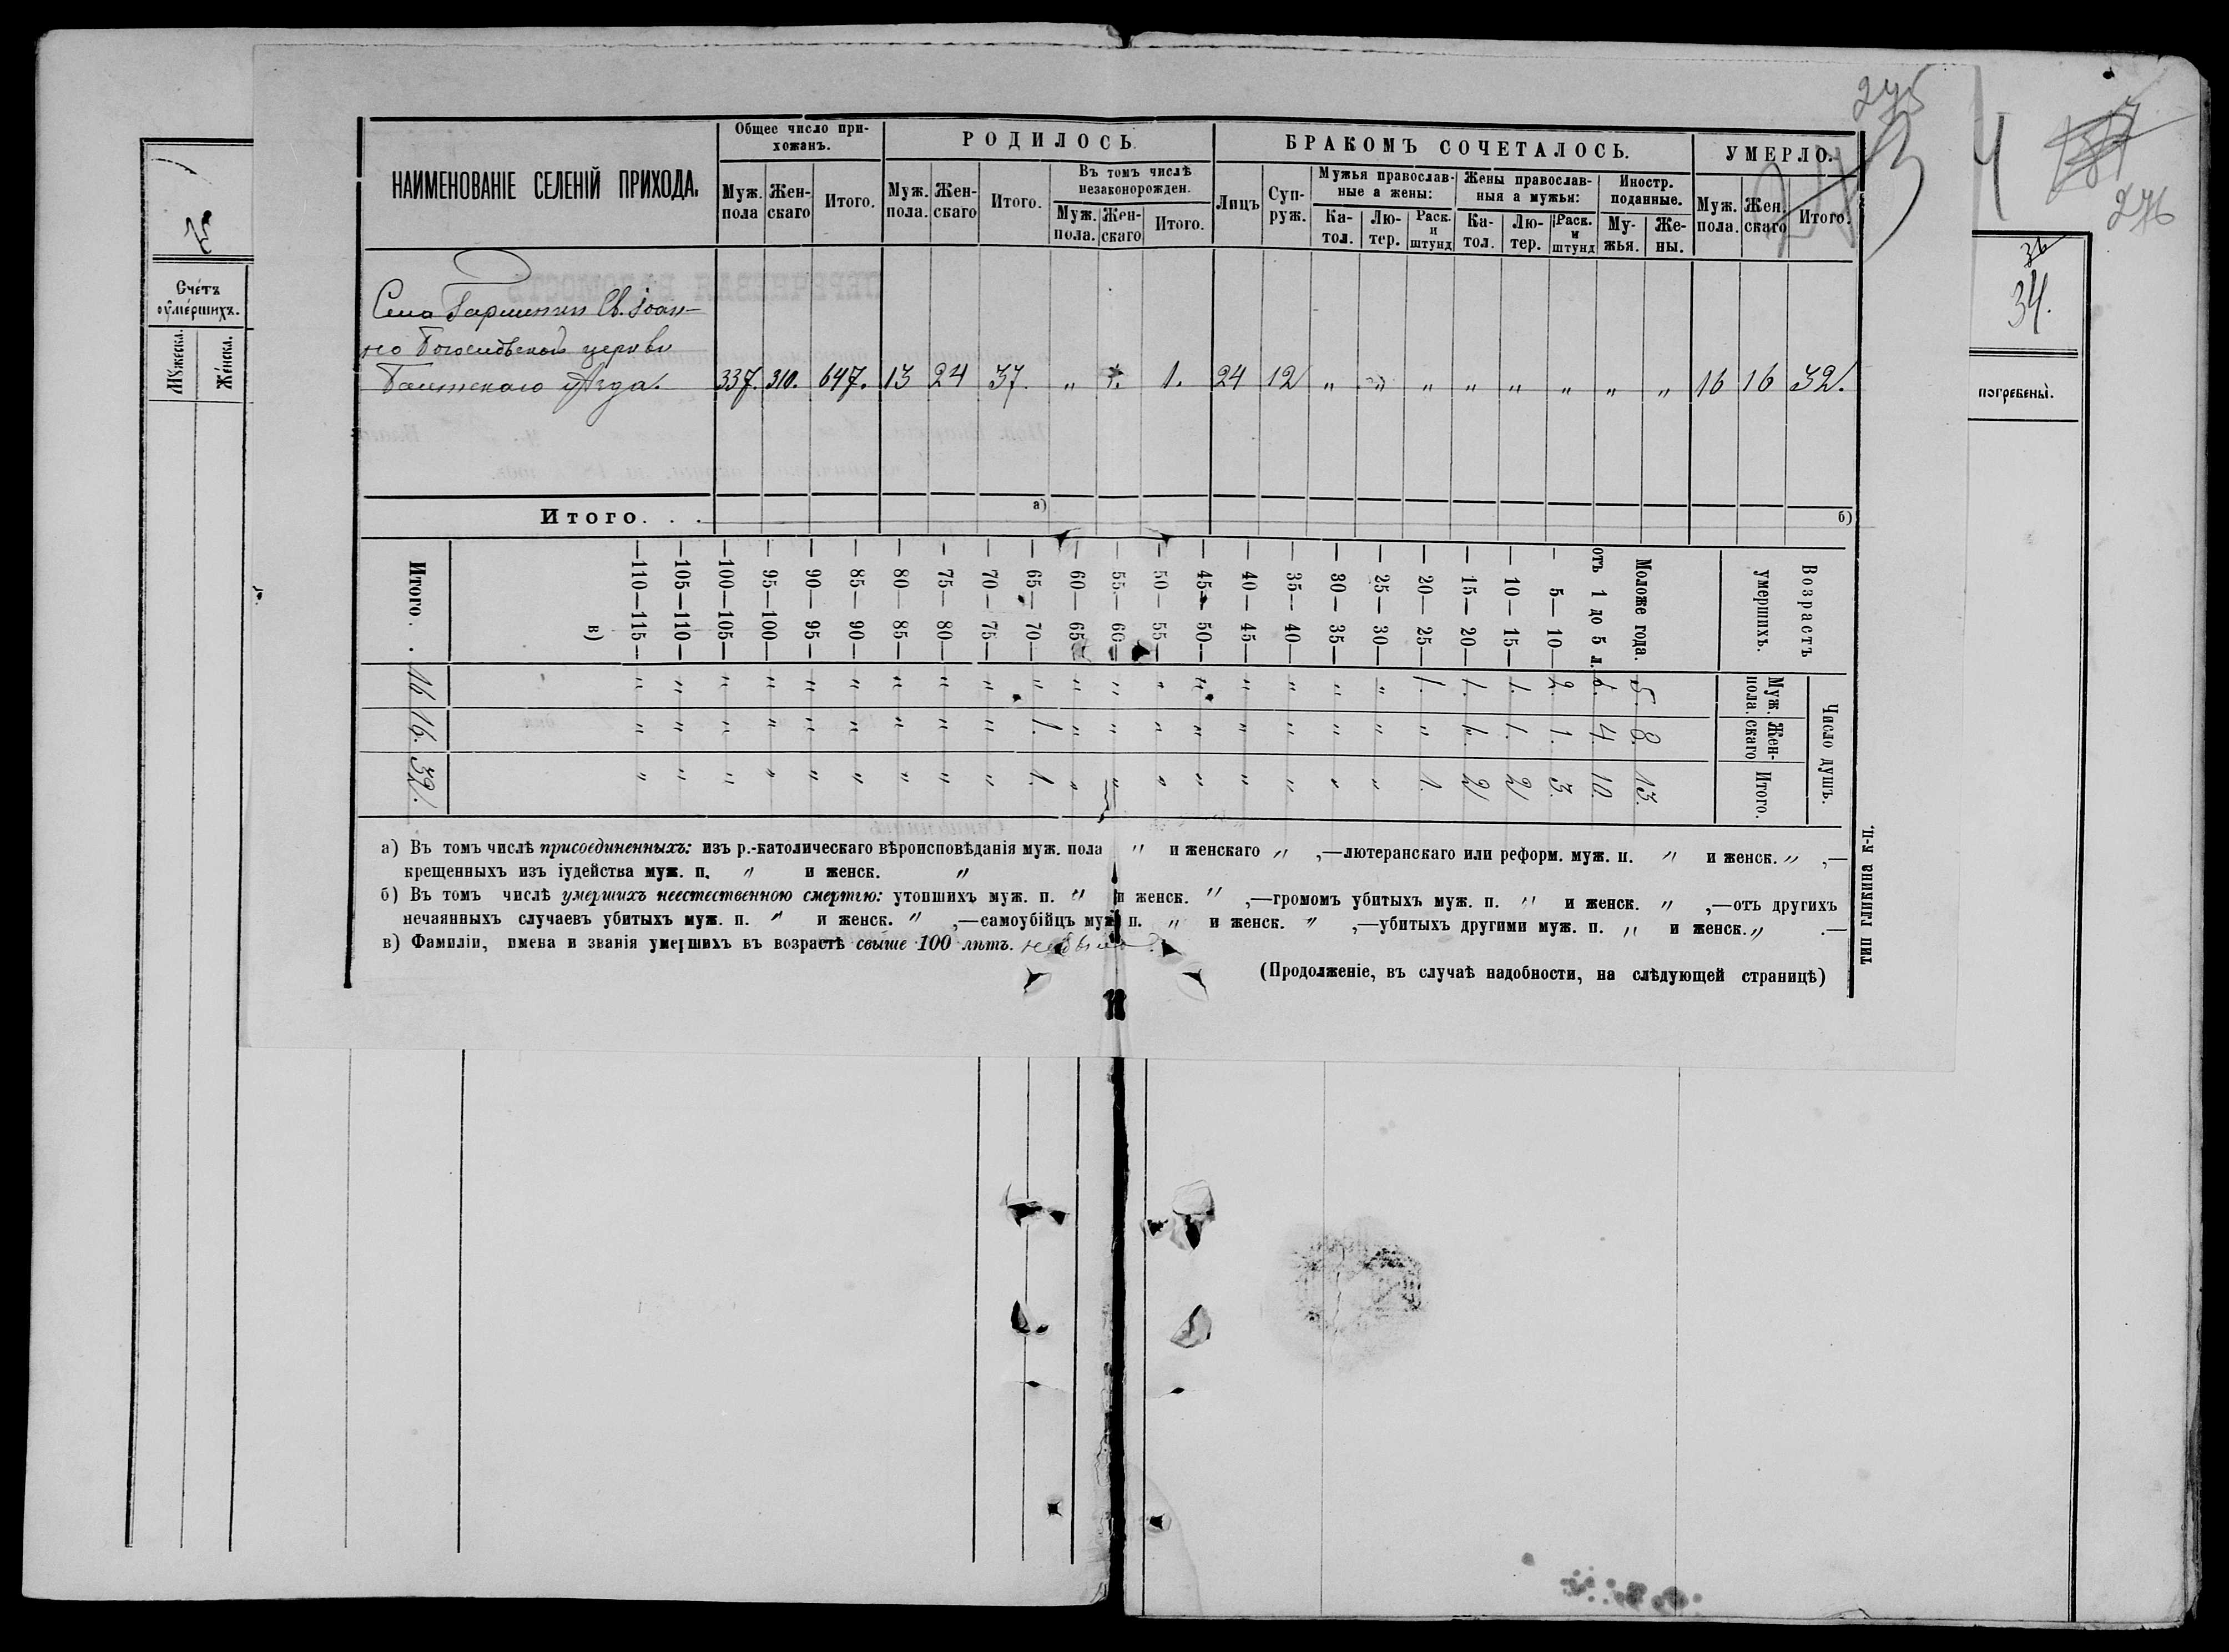 275
4
276
Счéтъ
оу҆мéршихъ.
Мꙋ́жеска.
Жéнска.
36
34.
погребены̀.
НАИМЕНОВАНІЕ СЕЛЕНІЙ ПРИХОДА.
Общее число при-
хожанъ.
Муж.
пола
Жен-
скаго
Итого.
РОДИЛОСЬ
Муж.
пола.
Жен-
скаго
Итого.
Въ томъ числѣ
незаконорожден.
Муж.
пола.
Жен-
скаго
Итого.
БРАКОМЪ СОЧЕТАЛОСЬ.
Лицъ
Суп-
руж.
Мужья православ-
ные а жены:
Ка-
тол.
Лю-
тер.
Раск.
и
штунд
Жены православ-
ныя а мужья:
Ка-
тол.
Лю-
тер.
Раск.
и
штунд
Иностр.
поданные.
Му-
жья.
Же-
ны.
УМЕРЛО.
Муж.
пола.
Жен.
скаго
Итого.
Села Св. Іоан-
но Богословской церкви
Балтскаго уѣзда. 337. 310. 647. 13 24 37. " 1. 1. 24 12 " " " " " " " " 16 16 32.
Итого. . .
а)
б)
Возрастъ
умершихъ.
Число душъ.
Муж.
пола.
Жен-
скаго
Итого.
Моложе года. 5. 8. 13.
отъ 1 до 5 л. 6. 4. 10.
— 5—10— 2. 1. 3.
— 10—15— 1. 1. 2
— 15—20— 1. 1. 2
— 20—25— 1. " 1.
— 25—30— " " "
— 30—35— " " "
— 35—40— " " "
— 40—45— " " "
— 45—50— " " "
— 50—55— " " "
— 55—60— " " "
— 60—65— " " "
— 65—70— " 1. 1.
— 70—75— " " "
— 75—80— " " "
— 80—85— " " "
— 85—90— " " "
— 90—95— " " "
— 95—100— " " "
—100—105— " " "
—105—110— " " "
—110—115— " " "
в)
Итого. . 16 16. 32.
а) Въ томъ числѣ присоединенныхъ: изъ р.-католическаго вѣроисповѣданія муж. пола " и женскаго " ,—лютеранскаго или реформ. муж. п. " и женск. " ,—
крещенныхъ изъ іудейства муж. п. " и женск. "
б) Въ томъ числѣ умершихъ неестественною смертію: утопшихъ муж. п. " и женск. " ,—громомъ убитыхъ муж. п. " и женск. " ,—отъ другихъ
нечаянныхъ случаевъ убитыхъ муж. п. " и женск. " ,—самоубійцъ муж. п. " и женск. " ,—убитыхъ другими муж. п. " и женск. " .—
в) Фамиліи, имена и званія умершихъ въ возрастѣ свыше 100 лѣтъ. не было.
(Продолженіе, въ случаѣ надобности, на слѣдующей страницѣ)
ТИП ГЛИКИНА К-П.